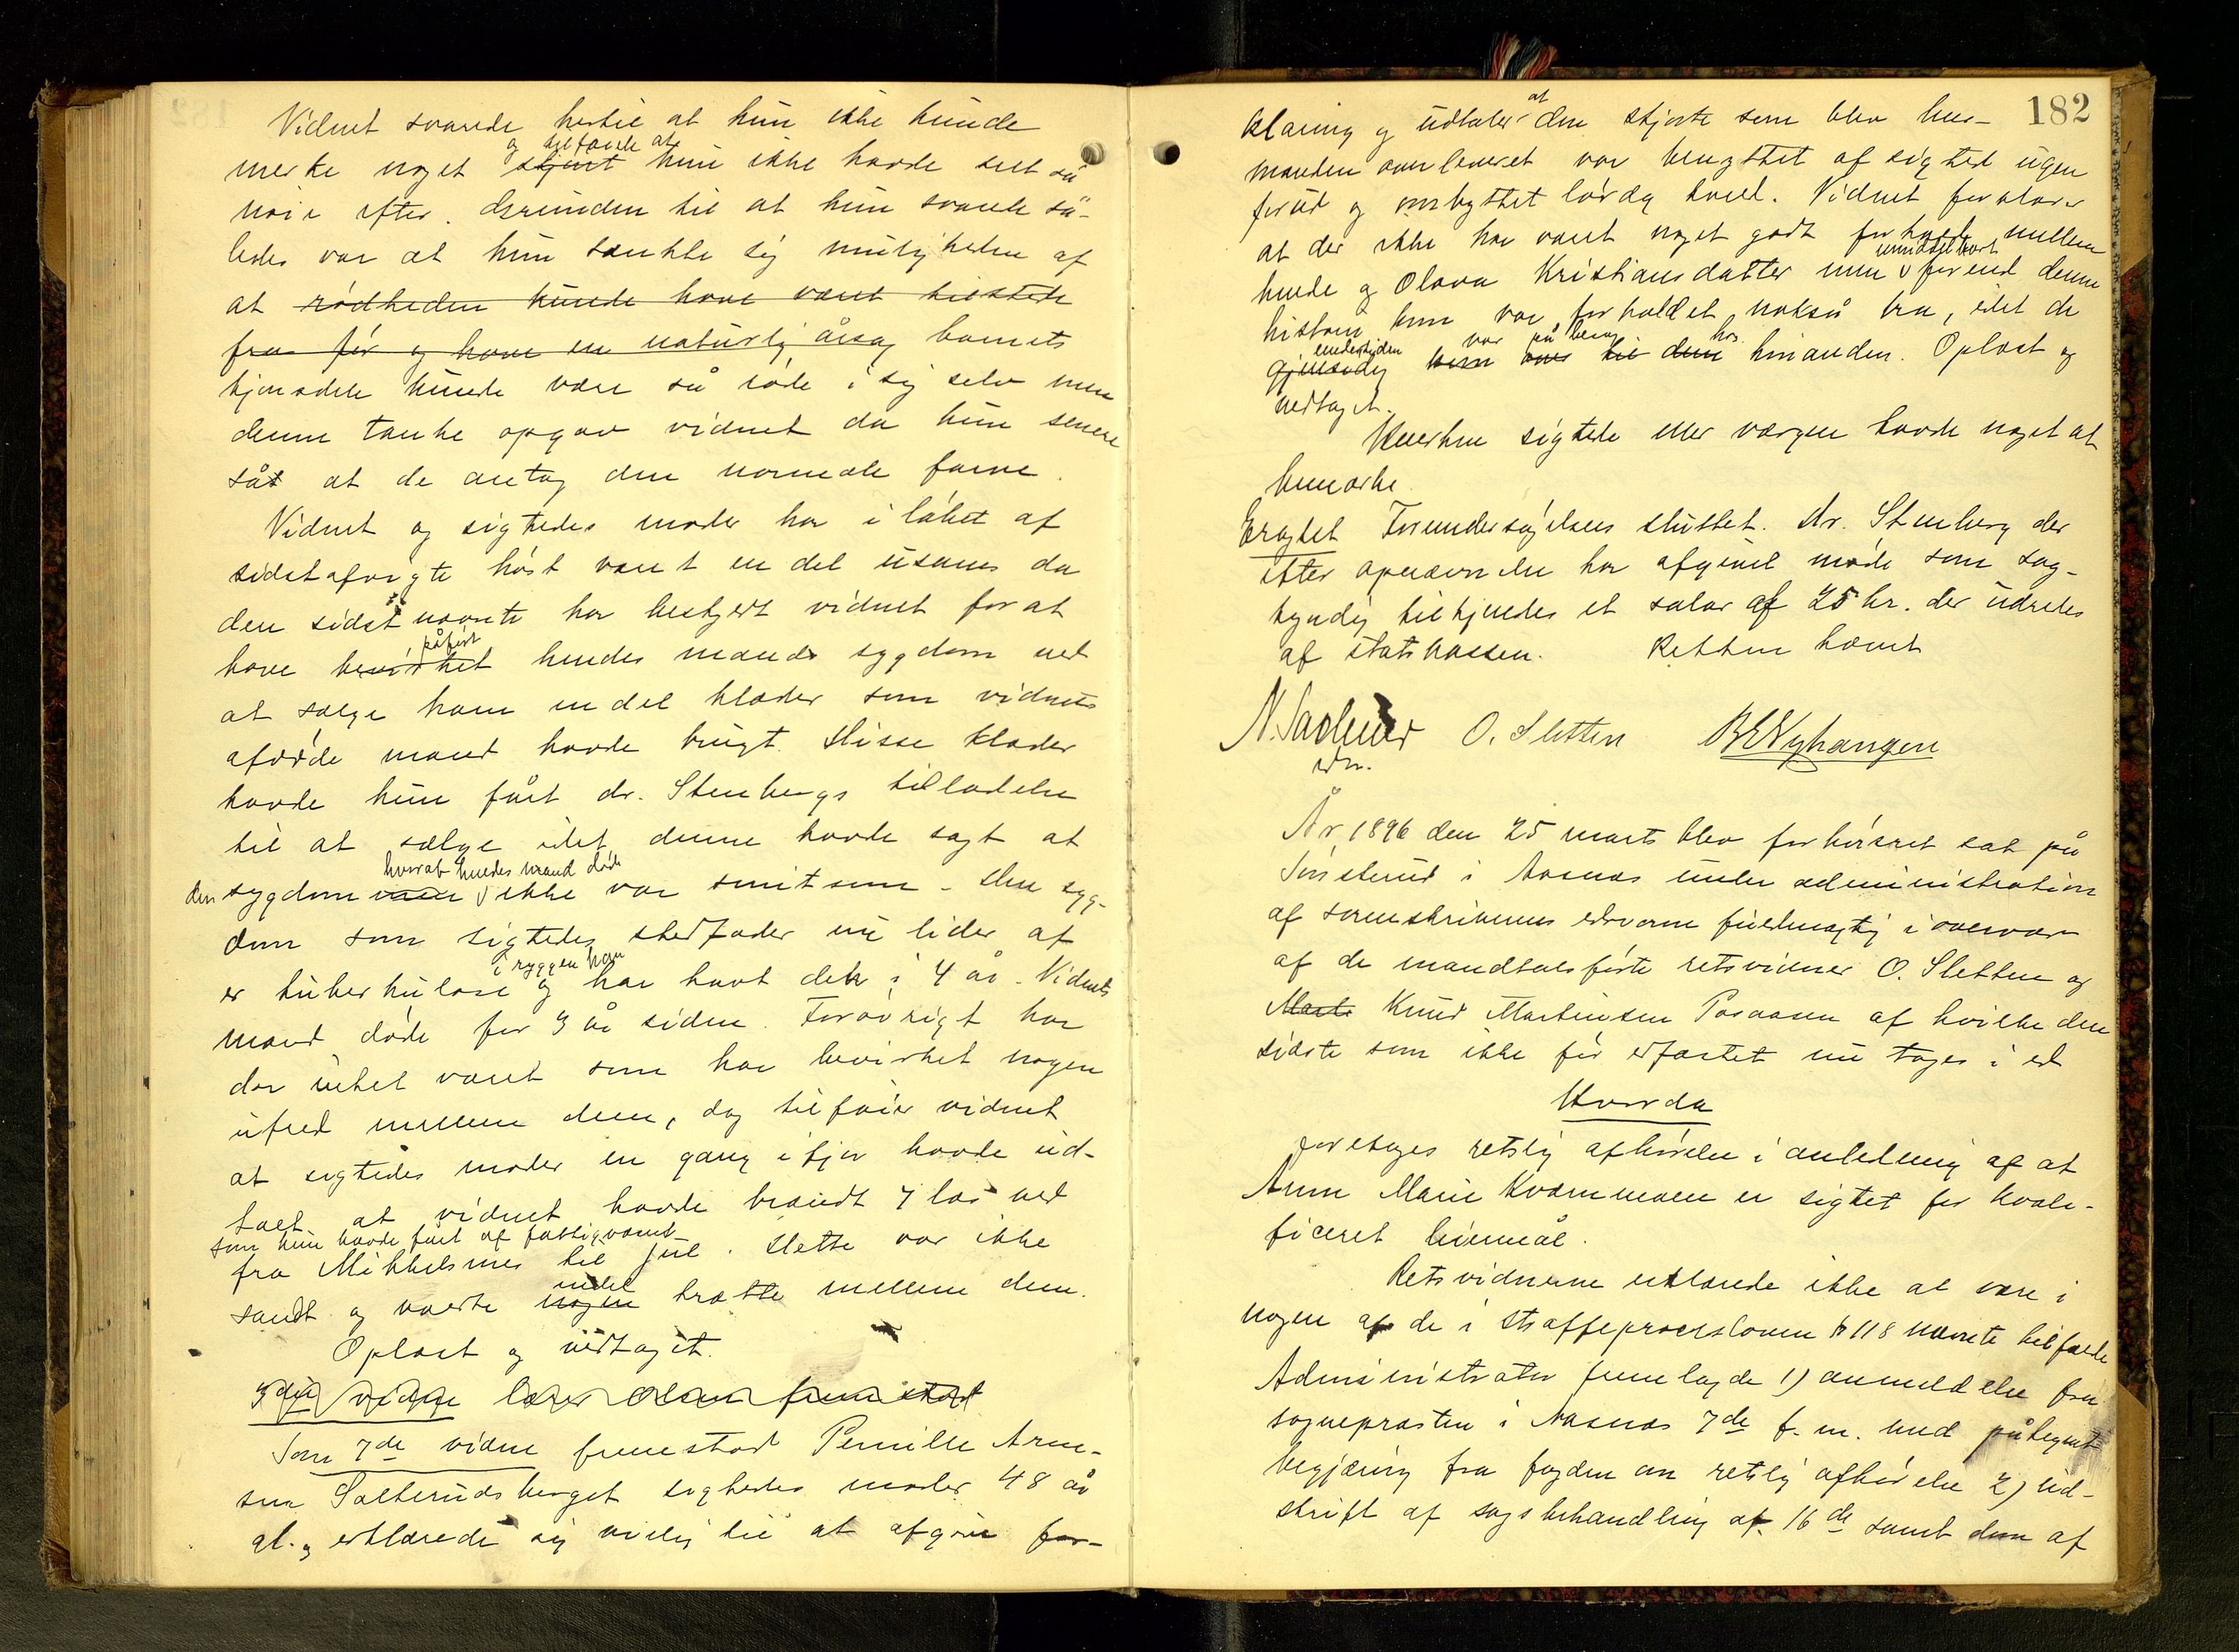 Vidnet svarede hertil at hun ikke kunde
og tilføiede at
merke noget skjønt hun ikke havde seet så
nøie efter. Grunden til at hun svarede så-
ledes var at hun tænkte sig muligheden af
at rødheden kunde have været tilstede
fra før og have en naturlig årsag barnets
kjønsdele kunde være så røde i sig selv men
denne tanke opgav vidnet da hun senere
såt at de antog den normale farve.
Vidnet og sigtedes moder har i løbet af
sidstafvigte høst været en del usams da
den sidstnævnte har beskyldt vidnet for at
påført
have bevirket hendes mands sygdom ved
at sælge ham en del klæder som vidnets
afdøde mand havde brugt. Disse klæder
havde hun fået dr. Stenbergs tilladelse
til at sælge idet denne havde sagt at
hvorab hendes mand døde
den sygdom ikke var smitsom. Den syg-
dom som sigtedes stedfader nu lider af
i ryggen han
er tuberkulose og har havt den i 4 år. Vidnets
mand døde for 3 år siden. Forøvrigt har
der intet været som har bevirket nogen
ufred mellem dem, dog tilføier vidnet
at sigtedes moder en gang ifjor havde ud-
talt at vidnet havde brændt 7 læs ved
som hun havde fået af fattigvæsenet
fra Mikkelsmes til jul. Dette var ikke
intet
sandt og vakte nogen trætte mellem dem.
Oplæst og vedtaget.
3die vidne Olava fremstod
Som 7de vidne fremstod Pernille Arne-
sen Sætterudsberget sigtedes moder 48 år
gl. og erklærede sig villig til at afgive for-
182
at
klaring og udtaler den skjorte som blev hus-
manden overleveret var benyttet af sigtede ugen
forud og ombyttet lørdag kveld. Vidnet forklarer
at der ikke har været noget godt forhold mellem
umiddelbart
hende og Olava Kristiansdatter men forend denne
historie kom var forholdet nokså bra, idet de
undertiden var på besøg hos
gjensidig kom til dem hinanden. Oplæst og
vedtaget.
Hverken sigtede eller værgen havde noget at
bemærke.
Eragtet Forundersøgelsen sluttet. Dr. Stenberg der
efter opnævnelse har afgivet møde som sag-
kyndig tilkjendes et salær af 25 kr. der udredes
af statskassen. Retten hævet
O. Sletten B E Nyhangen
År 1896 den 25 marts blev forhørsret sat på
Sønsterud i Aasnæs under administration
af sorenskriverens edsvorne fuldmægtig i overvær
af de mandtalsførte retsvidner O. Sletten og
Marti Knud Martinsen Posaasen af hvilke den
sidste som ikke før edfæstet nu toges i ed
Hvorda
foretoges retslig afhørelse i anledning af at
Anne Marie Kværnmoen er sigtet for kvali-
ficeret leiermål.
Retsvidnerne erklærede ikke at være i
nogen af de i straffeprocesloven § 118 nævnte tilfælde
Administrator fremlagde 1) anmeldelse fra
sognepresten i Aasnæs 7de f. m. med påtegnet
begjæring fra fogden om retslig afhørelse 2) ud-
skrift af sagsbehandling af 16de samt dom af